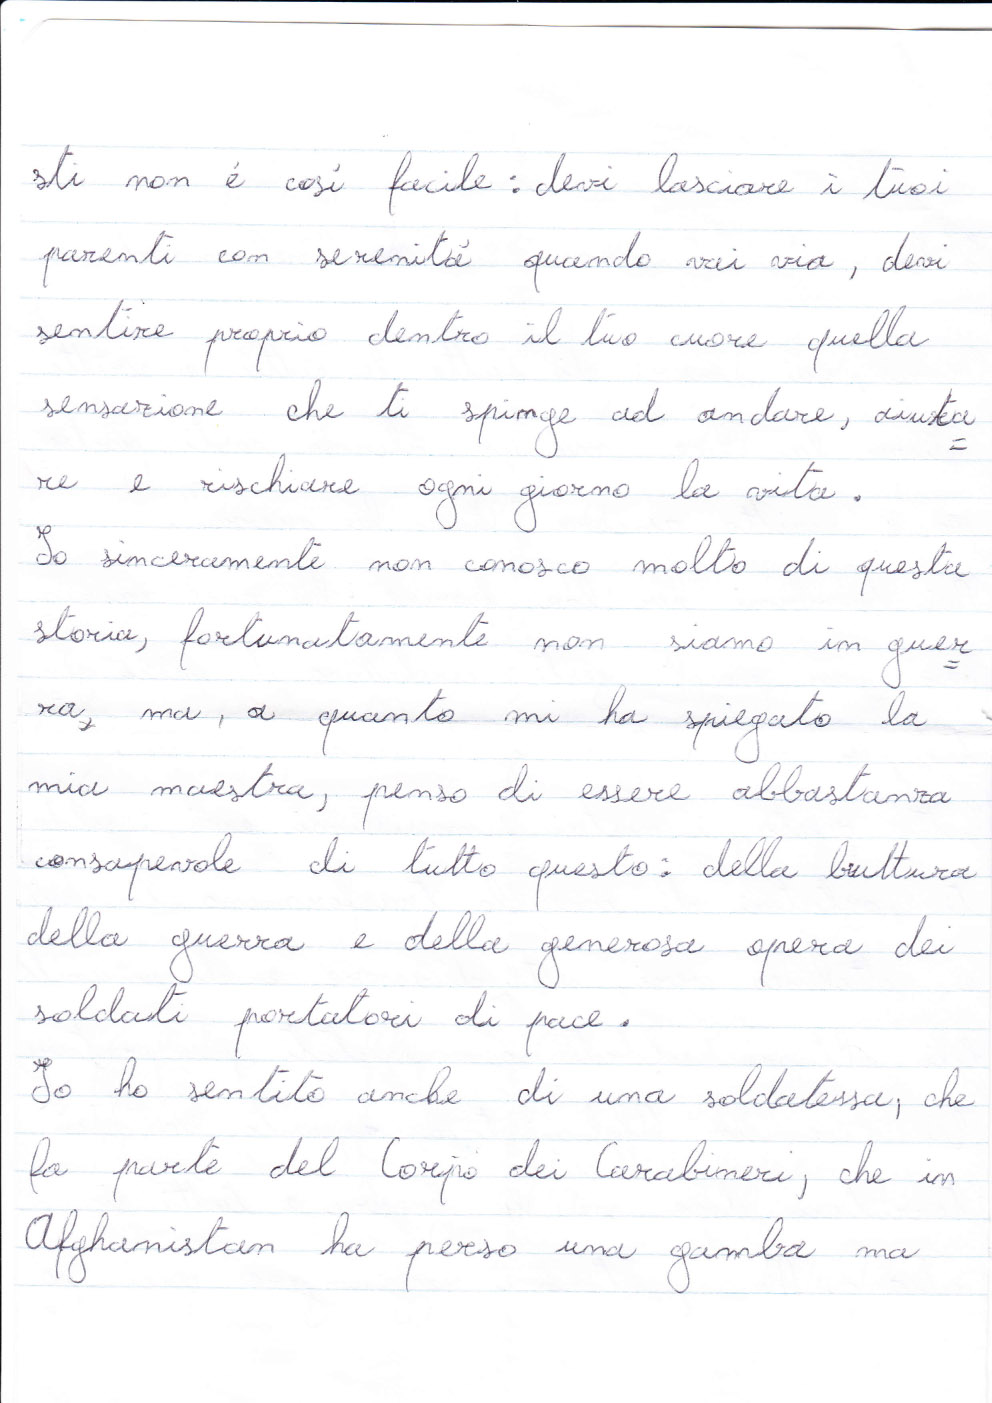 sti non é cosí facile: devi lasciare i tuoi
parenti con serenitá quando vai via, devi
sentire proprio dentro il tuo cuore quella
sensazione che ti spinge ad andare, aiuta=
re e rischiare ogni giorno la vita.
Io sinceramente non conosco molto di questa
storia, fortunatamente non siamo in guer=
ra, ma, a quanto mi ha spiegato la
mia maestra, penso di essere abbastanza
consapevole di tutto questo: della bruttura
della guerra e della generosa opera dei
soldati portatori di pace.
Io ho sentito anche di una soldatessa, che
fa parte del Corpo dei Carabinieri, che in
Afghanistan ha perso una gamba ma